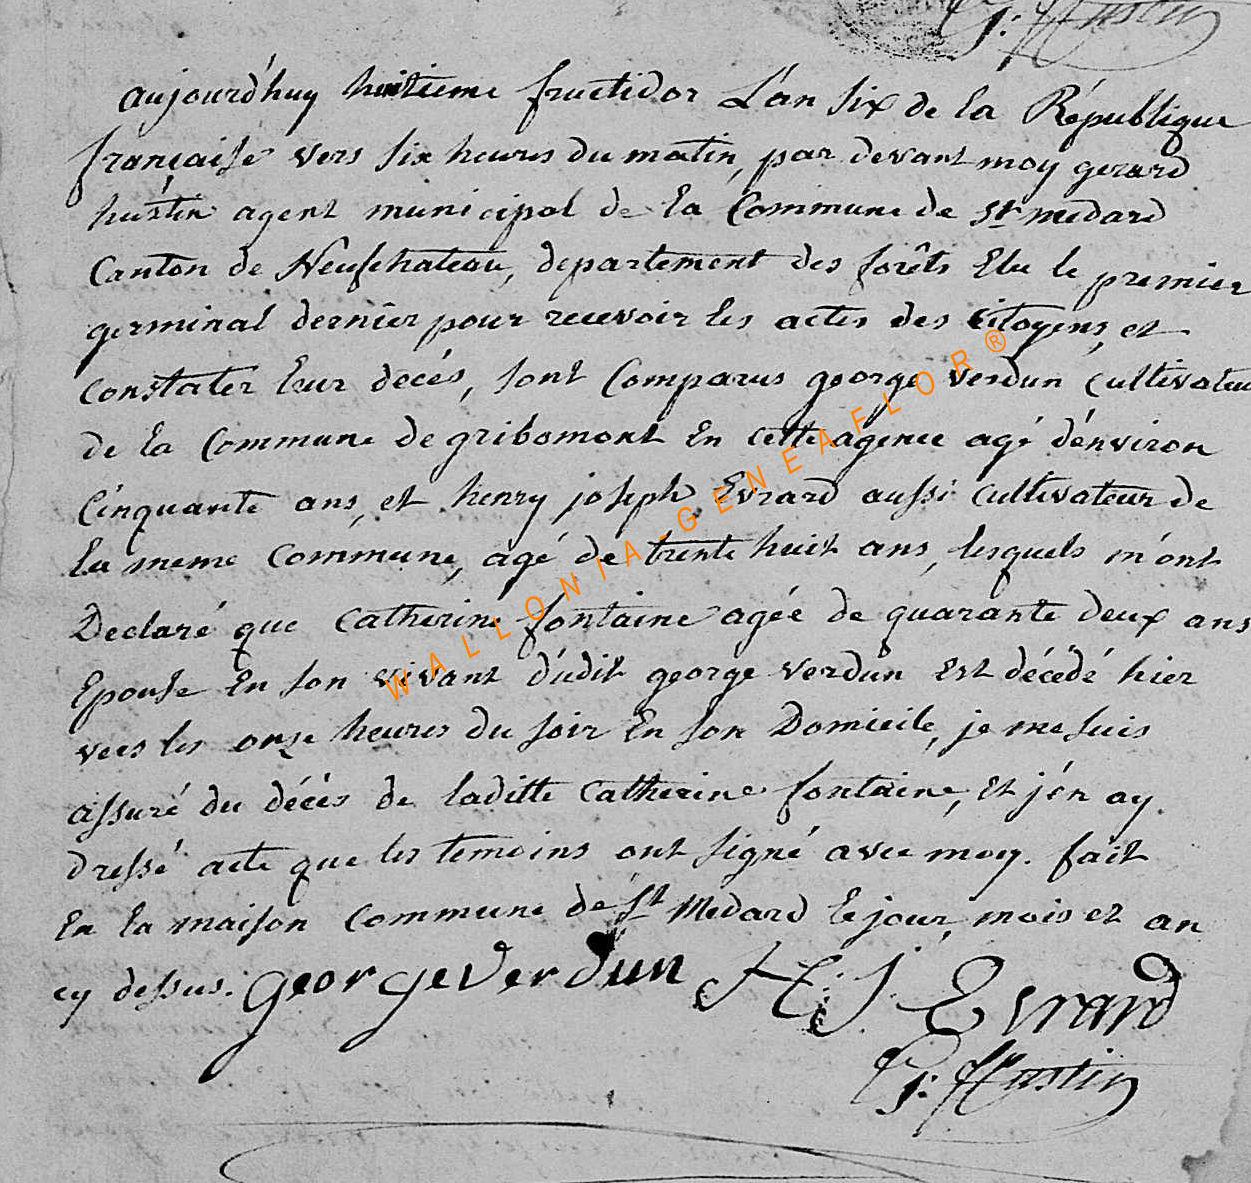 G: Hustin
aujourd'huy huitieme fructidor L'an six de la République
françaife vers six heures du matin, par devant moy gerard
hustin agent municipal de la Commune de St medard
Canton de Neufchateau, departement des forêts Elu le premier
germinal dernier pour recevoir les actes des Citoyens, et
constater leur décés, sont Comparus george verdun Cultivateur
de la Commune de gribomont En cette agence agé d'environ
Cinquante ans, et henry joseph Evrard aussi Cultivateur de
la meme Commune, agé de trente huit ans, lesquels m'ont
Declaré que Catherine fontaine agée de quarante deux ans
Epouse En son vivant dudit george verdun Est décédé hier
vers les onze heures du soir En son Domicile, je me suis
assuré du décés de laditte Catherine fontaine, Et j'en ay
dressé acte que les temoins ont signé avec moy. fait
En la maison Commune de St Medard le jour, mois et an
cy dessus. George Verdun H: J: Evrard
G: Hustin
WALLONIA-GENEAFLOR®